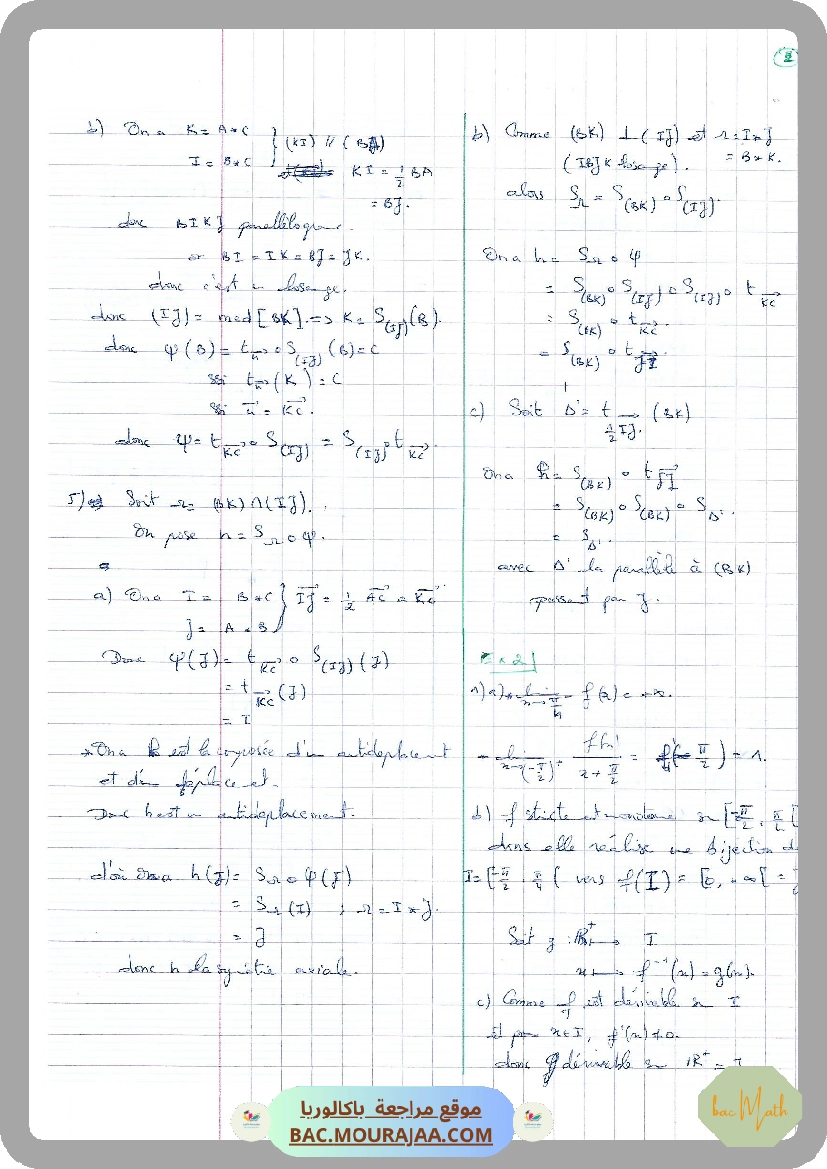 b) On a K = A * C
I = B * C
} (KI) // (BA)
KI = 1/2 BA
= BJ.
donc BIKJ parallélogramme.
or BI = IK = BJ = JK.
donc c'est un losange.
donc (IJ) = med[BK] => K = S_(IJ)(B)
donc ψ(B) = t_u→ o S_(IJ) (B) = C
ssi t_u→ (K) = C
ssi u→ = KC→.
donc ψ = t_KC→ o S_(IJ) = S_(IJ) o t_KC→.
5) Soit Ω = (BK) ∩ (IJ).
On pose h = S_Ω o ψ.
a) On a I = B * C
J = A * B
} IJ→ = 1/2 AC→ = KC→
Donc ψ(J) = t_KC→ o S_(IJ) (J)
= t_KC→ (J)
= I
* On a h est la composée d'un antidéplacement
et d'un déplacement.
Donc h est un antidéplacement.
d'où h(J) = S_Ω o ψ(J)
= S_Ω (I) ; Ω = I * J.
= J
donc h la symétrie axiale.
2
b) Comme (BK) ⊥ (IJ) et Ω = I * J
= B * K.
(IBJK losange).
alors S_Ω = S_(BK) o S_(IJ).
On a h = S_Ω o ψ
= S_(BK) o S_(IJ) o S_(IJ) o t_KC→
= S_(BK) o t_KC→.
= S_(BK) o t_JI→
c) Soit Δ' = t_1/2 IJ→ (BK)
On a h = S_(BK) o t_JI→
= S_(BK) o S_(BK) o S_Δ'.
= S_Δ'.
avec Δ' la parallèle à (BK)
passant par J.
Ex 2
1) a) * lim f(x) = +∞.
- lim x→(-π/2)+ f(x)/(x + π/2) = f'(-π/2) = 1.
b) f strictement monotone sur [-π/2,
donc elle réalise une bijection de
I = [-π/2, π/4[ vers f(I) = [0, +∞[ =
Soit g : IR+ → I
x → f⁻¹(x) = g(x).
c) Comme f est dérivable sur I
et pour x ∈ I, f'(x) ≠ 0.
donc g dérivable sur IR+ =
موقع مراجعة باكالوريا
BAC.MOURAJAA.COM
bac Math